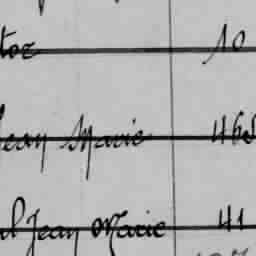 toz 10
Jean Marie 465
Jean Marie 41